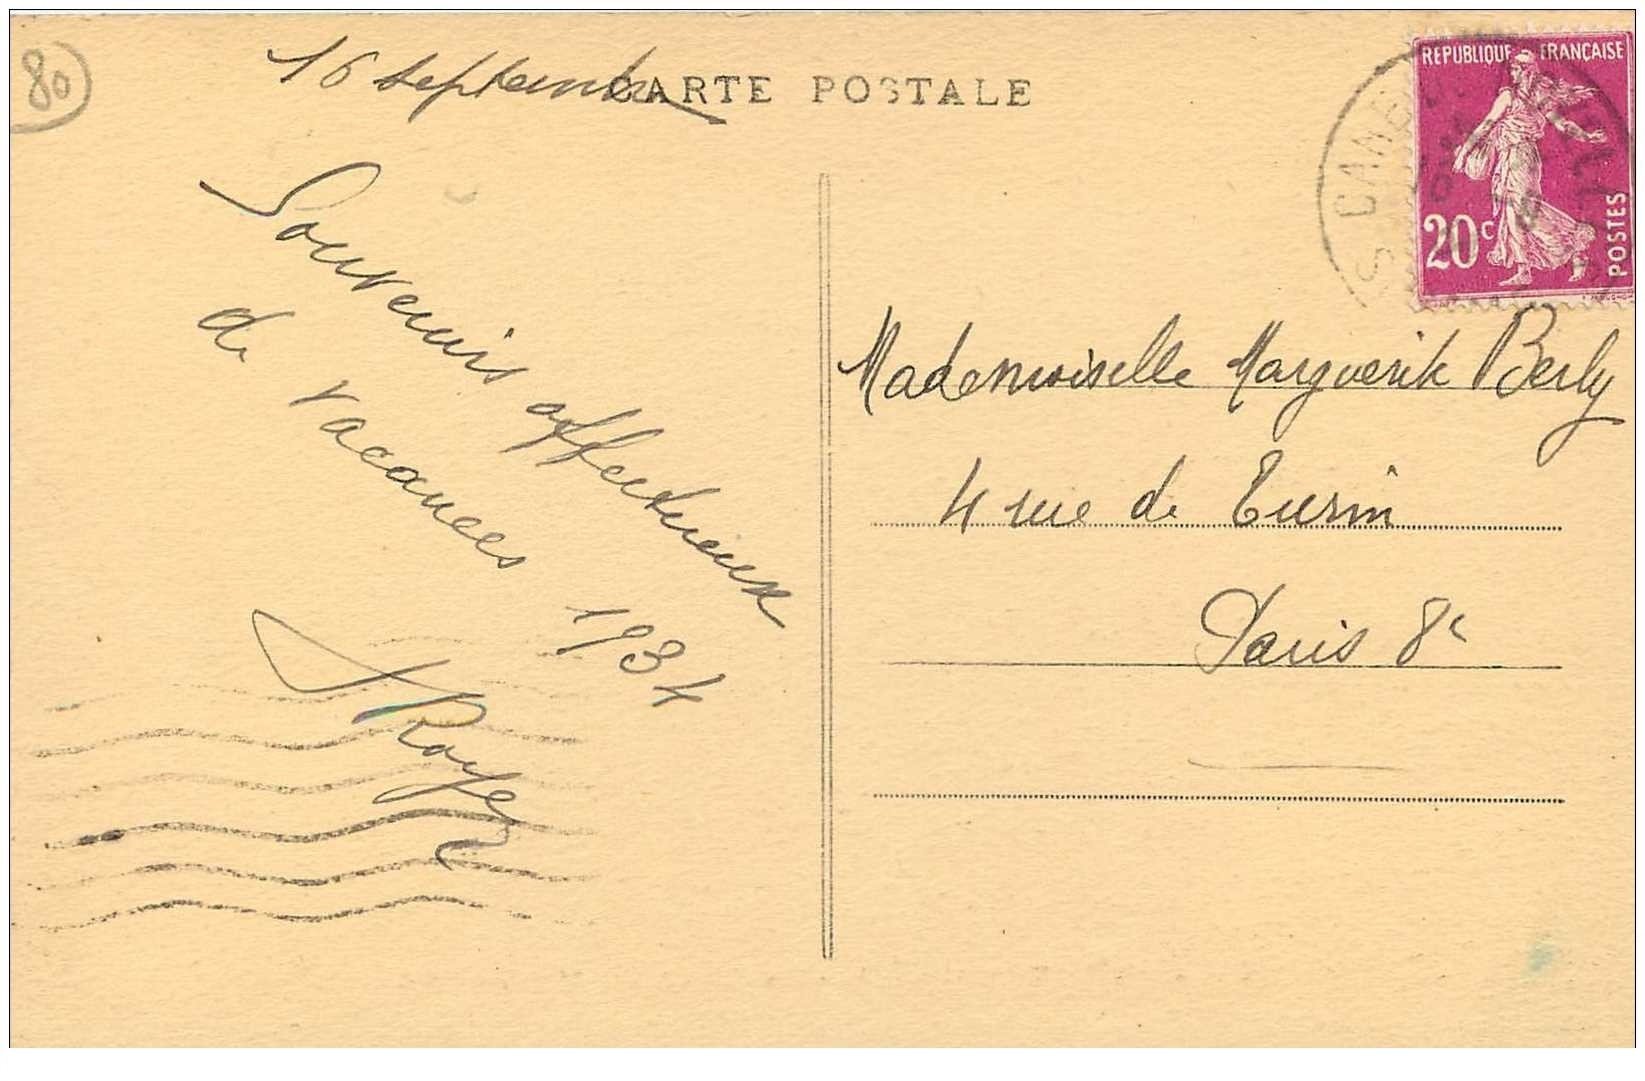 80
16 septembre
CARTE POSTALE
REPUBLIQUE FRANÇAISE
20c
POSTES
Souvenirs affectueux
de vacances 1934
Royer
Mademoiselle Marguerite Berly
4 rue de Turin
Paris 8e